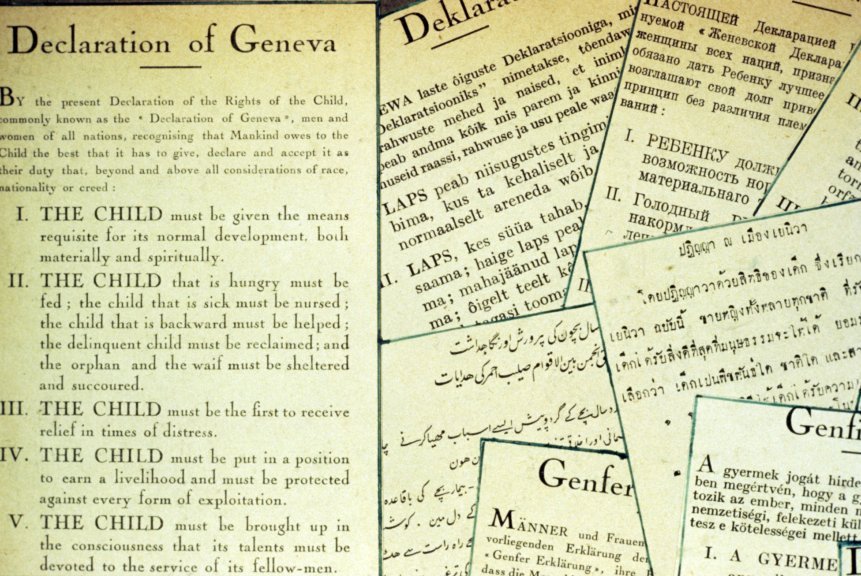 Declaration of Geneva
By the present Declaration of the Rights of the Child,
commonly known as the « Declaration of Geneva », men and
women of all nations, recognising that Mankind owes to the
Child the best that it has to give, declare and accept it as
their duty that, beyond and above all considerations of race,
nationality or creed :
I. THE CHILD must be given the means
requisite for its normal development, both
materially and spiritually.
II. THE CHILD that is hungry must be
fed ; the child that is sick must be nursed ;
the child that is backward must be helped ;
the delinquent child must be reclaimed ; and
the orphan and the waif must be sheltered
and succoured.
III. THE CHILD must be the first to receive
relief in times of distress.
IV. THE CHILD must be put in a position
to earn a livelihood and must be protected
against every form of exploitation.
V. THE CHILD must be brought up in
the consciousness that its talents must be
devoted to the service of its fellow-men.
Deklara
laste õiguste Deklaratsiooniga,
Deklaratsiooniks” nimetakse, tõendaw
rahwuste mehed ja naised, et inim
peab andma kõik mis parem ja kinni
raassi, rahwuse ja usu peale waa
LAPS peab niisugustes tingim
bima, kus ta kehaliselt ja
normaalselt areneda wõib
II. LAPS, kes süüa tahab,
saama ; haige laps peab
ma ; mahajäänud lap
ma ; õigelt teelt
tagasi tooma
НАСТОЯЩЕЙ Декларацией
нуемой « Женевской Деклара
женщины всех наций, призна
обязано дать Ребенку лучшее
возглашают свой долг
принцип без различия плем
ваний :
I. РЕБЕНКУ ДОЛЖ
возможность нор
материальнаго
II. Голодный
накормл
III
ปฏิญญา ณ เมืองเยนิวา
โดยปฏิญญาว่าด้วยสิทธิของเด็ก ซึ่งเรียก
เยนิวา ฉบับนี้ ชายหญิงทั้งหลายทุกชาติ
เด็กได้รับสิ่งดีที่สุดที่มนุษธรรมจะให้ได้ ยอม
เลือกว่า เด็กเป็นพืชพันธุ์ใด ชาติใด
ได้รับความ
بچوں کی پرورش اور نگہداشت
انجمن بین الاقوام صلیب احمر کی ہدایات
بچے کے گرد و پیش ایسے اسباب مہیا کرنے
Genfer
MÄNNER und Frauen
vorliegenden Erklärung der
« Genfer Erklärung », ihre
dass die
Genfi
A gyermek jogát hirde
ben megértvén, hogy a
tozik az ember, minden
nemzetiségi, felekezeti kül
tesz e kötelességei mellett
I. A GYERME